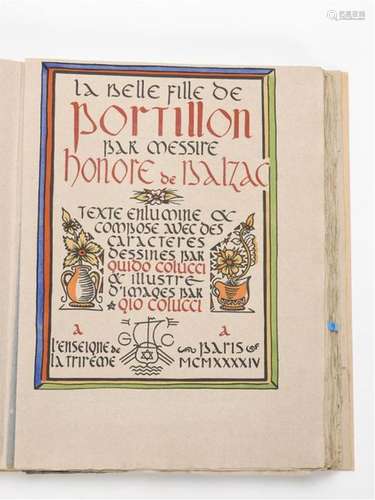 la Belle fille de
PORTILLON
par Messire
honore de Balzac
Texte enluminé &
compose avec des
caracteres
dessines par
Guido Colucci
& illustré
d'images par
Gio Colucci
a
a
G C
l'enseigne de
la trireme
Paris
MCMXXXIV